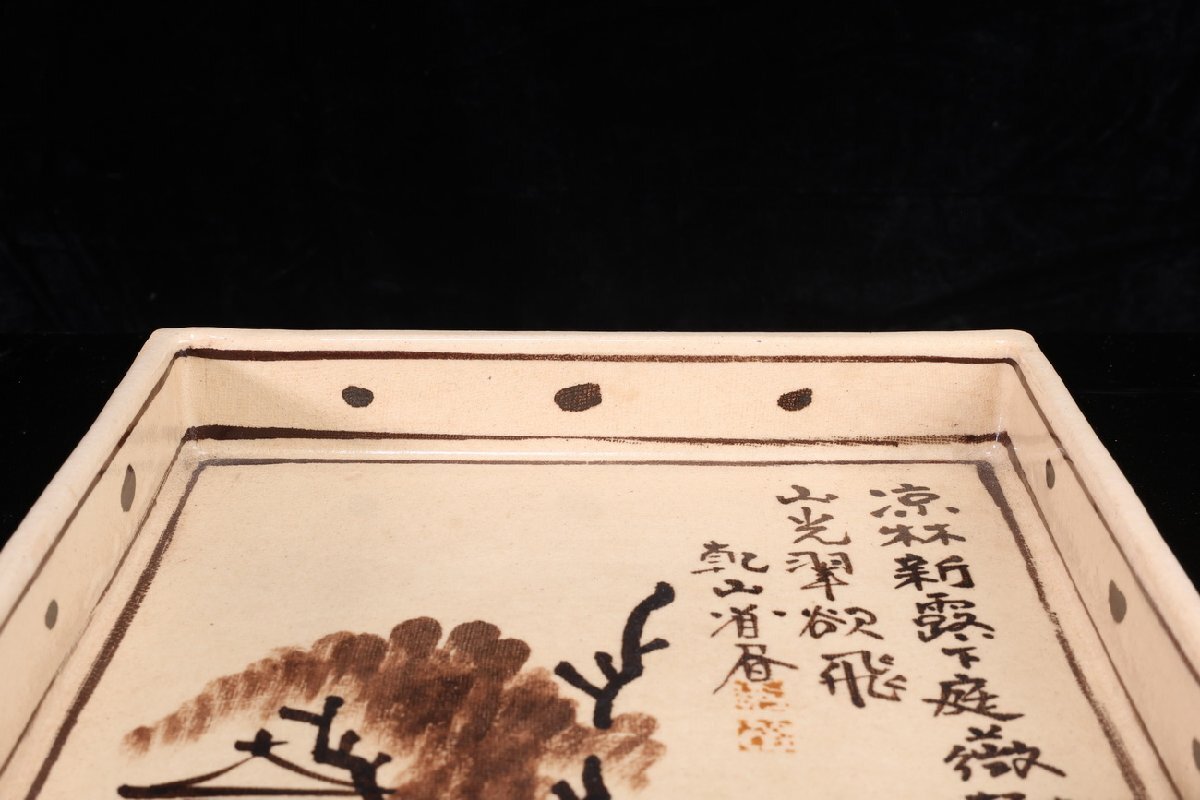 凉林新露下庭薇
山光翠欲飛
乾山省屑